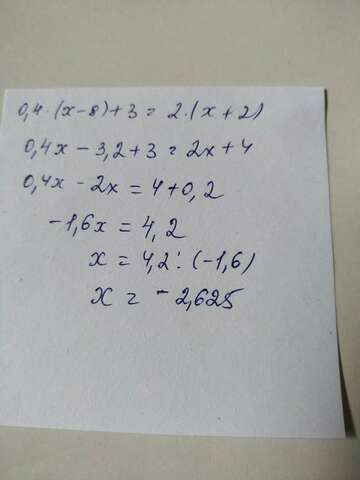 0,4·(x-8)+3=2·(x+2)
0,4x-3,2+3=2x+4
0,4x-2x=4+0,2
-1,6x=4,2
x=4,2:(-1,6)
x=-2,625